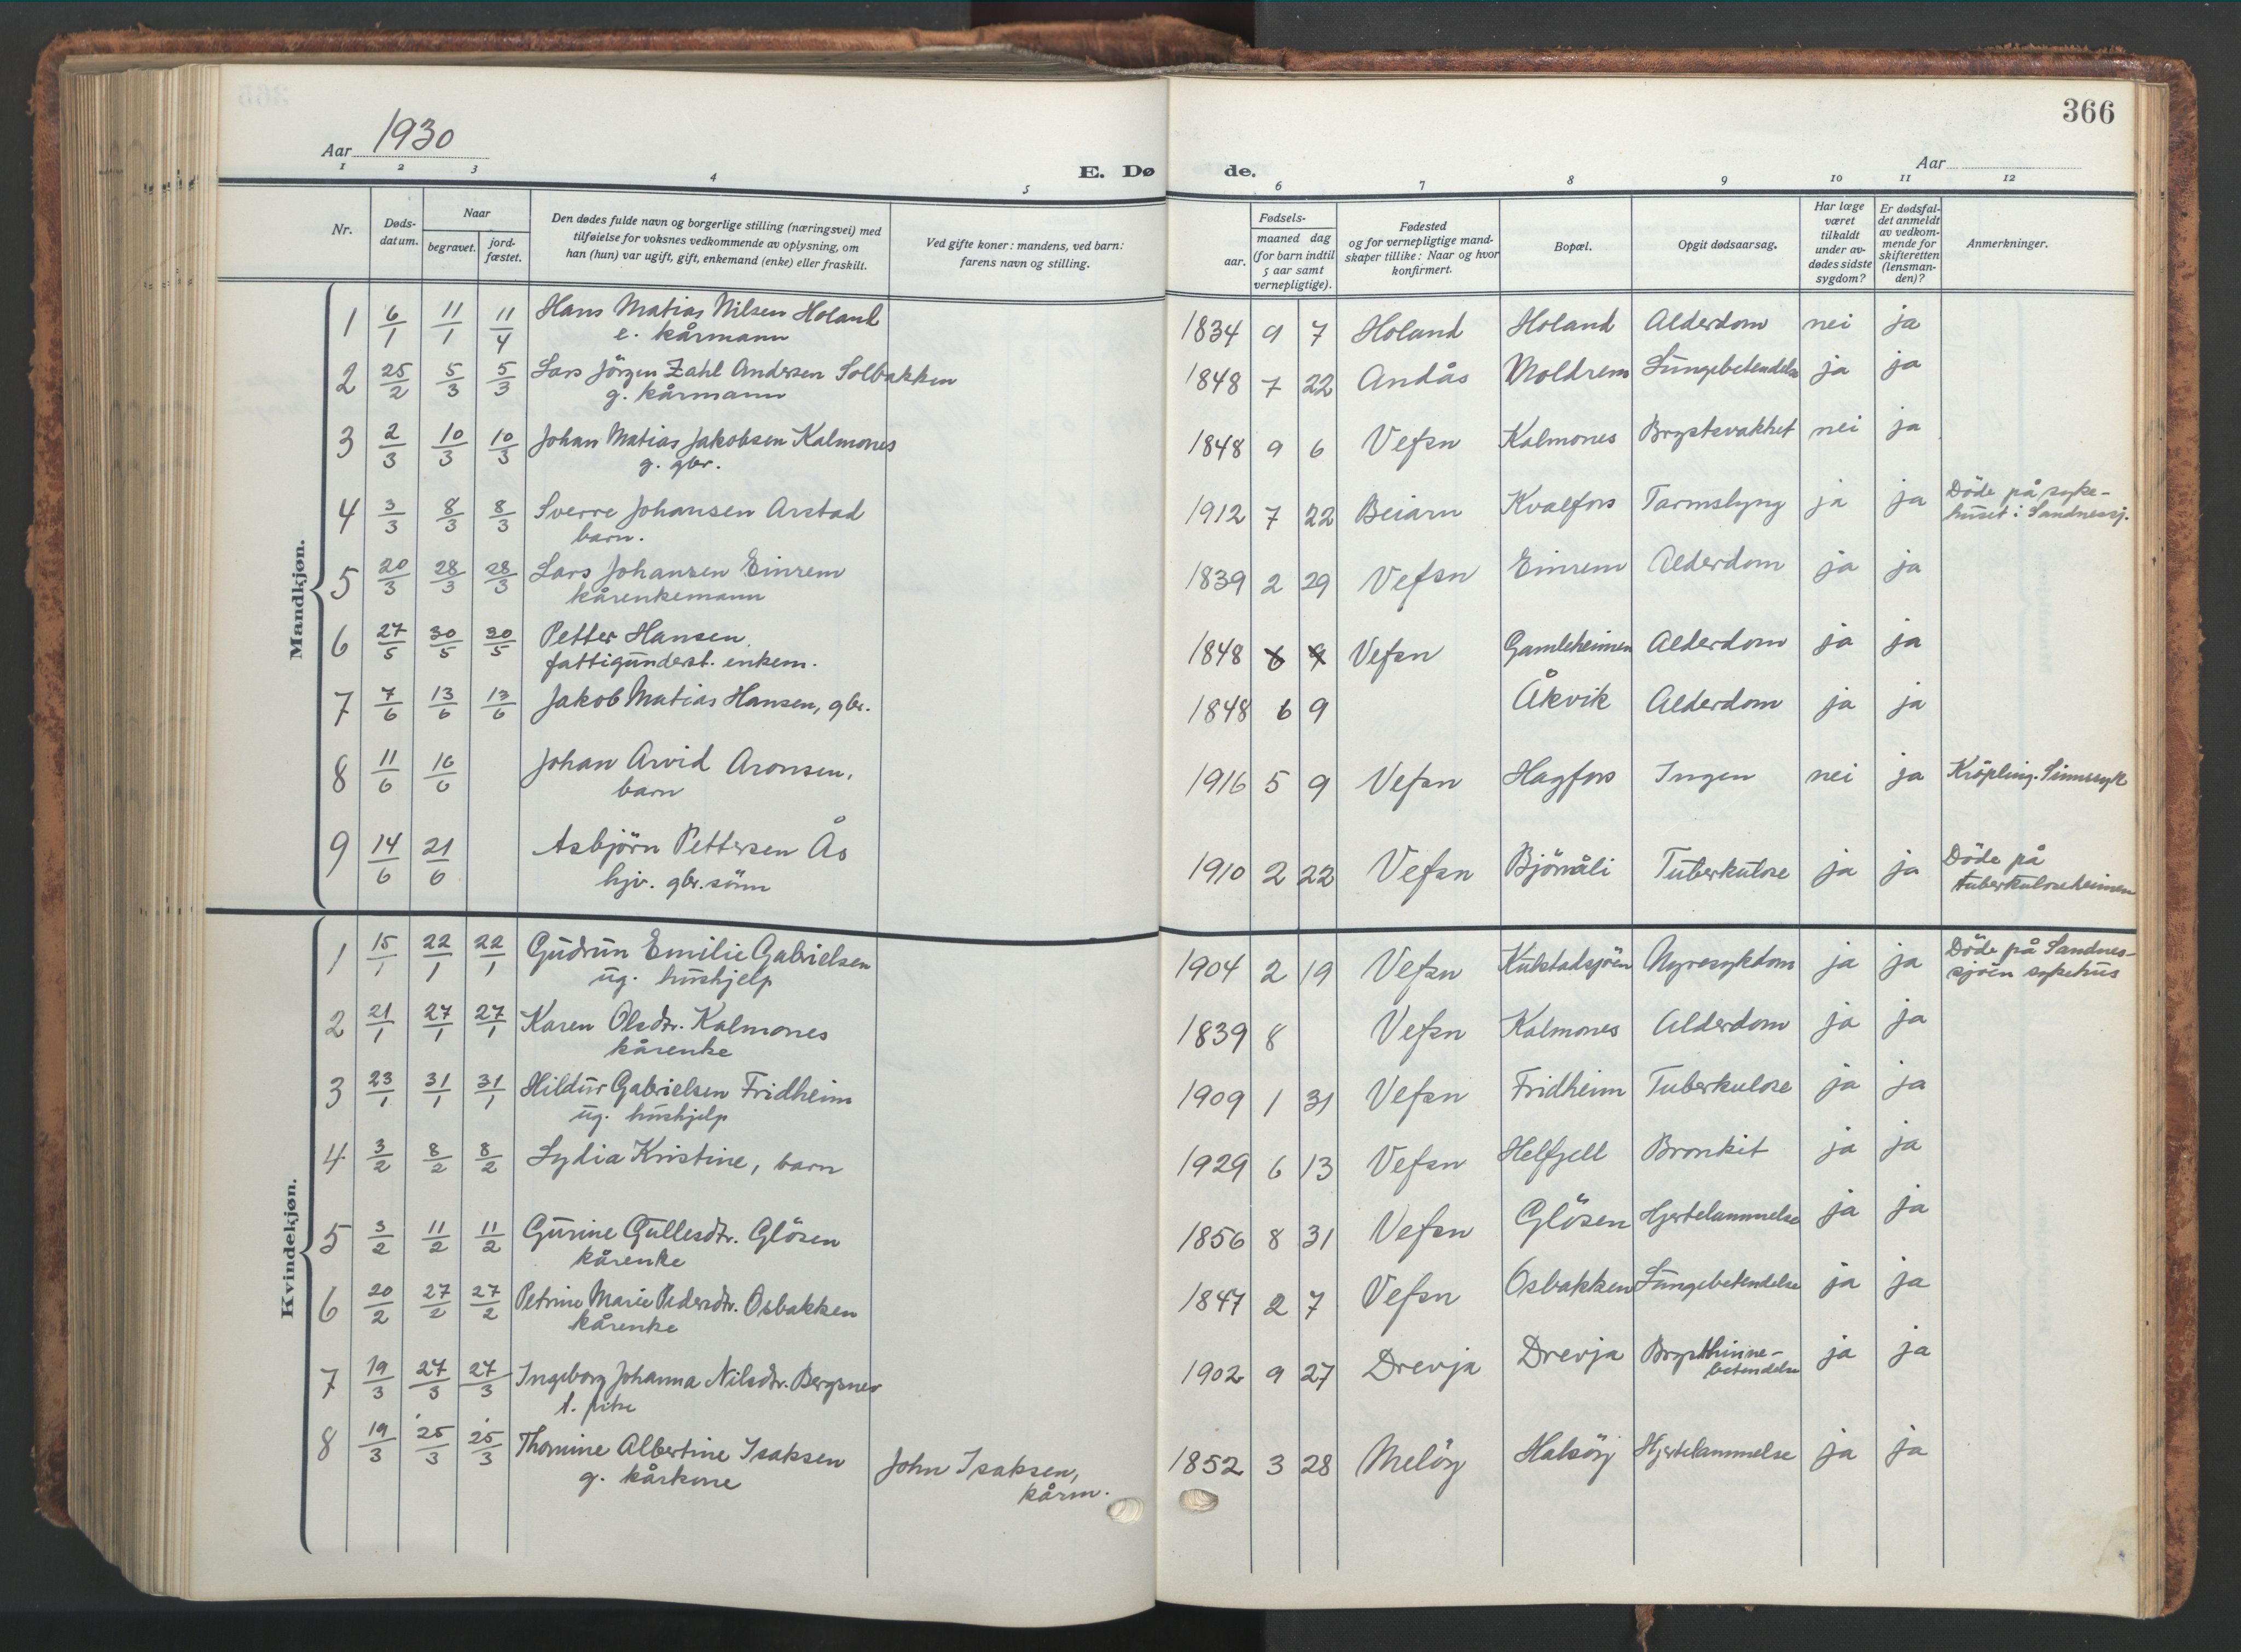 366
Aar 1930
E. Døde.
Aar
1 2 3 4 5 6 7 8 9 10 11 12
Nr.
Døds-
datum.
Naar
begravet.
jord-
fæstet.
Den dødes fulde navn og borgerlige stilling (næringsvei) med
tilføielse for voksnes vedkommende av oplysning, om
han (hun) var ugift, gift, enkemand (enke) eller fraskilt.
Ved gifte koner: mandens, ved barn:
farens navn og stilling.
Fødsels-
aar.
maaned dag
(for barn indtil
5 aar samt
vernepligtige).
Fødested
og for vernepligtige mand-
skaper tillike: Naar og hvor
konfirmert.
Bopæl.
Opgit dødsaarsag.
Har læge
været
tilkaldt
under av-
dødes sidste
sygdom?
Er dødsfal-
det anmeldt
av vedkom-
mende for
skifteretten
(lensman-
den)?
Anmerkninger.
Mandkjøn.
1 6/1 11/1 11/4 Hans Matias Nilsen Holand 1834 9 7 Holand Holand Alderdom nei ja
e. kårmann
2 25/2 5/3 5/3 Lars Jörgen Zahl Andersen Solbakken 1848 7 22 Andås Moldrem Lungebetendelse ja ja
g. kårmann
3 2/3 10/3 10/3 Johan Matias Jakobsen Kalmones 1848 9 6 Vefsn Kalmones Brystsvakhet nei ja
g. gbr.
4 3/3 8/3 8/3 Sverre Johansen Arstad 1912 7 22 Beiarn Kvalfors Tarmslyng ja ja Döde på syke-
barn. huset i Sandnessj.
5 20/3 28/3 28/3 Lars Johansen Einrem 1839 2 29 Vefsn Einrem Alderdom ja ja
kårenkemann
6 27/5 30/5 30/5 Petter Hansen 1848 6 9 Vefsn Gamleheimen Alderdom ja ja
fattigunderst. enkem.
7 7/6 13/6 13/6 Jakob Matias Hansen, gbr. 1848 6 9 Åkvik Alderdom ja ja
8 11/6 16/6 Johan Arvid Aronsen, 1916 5 9 Vefsn Hagfors Ingen nei ja Kröpling. Sinnssyk
barn
9 14/6 21/6 Asbjörn Pettersen Ås 1910 2 22 Vefsn Björnåli Tuberkulose ja ja Döde på
hjv. gbr. sönn tuberkuloseheimen
Kvindekjøn.
1 15/1 22/1 22/1 Gudrun Emilie Gabrielsen 1904 2 19 Vefsn Kulstadsjöen Nyresykdom ja ja Döde på Sandnes-
ug. hushjelp sjöen sykehus
2 21/1 27/1 27/1 Karen Olsdtr. Kalmones 1839 8 Vefsn Kalmones Alderdom ja ja
kårenke
3 23/1 31/1 31/1 Hildur Gabrielsen Fridheim 1909 1 31 Vefsn Fridheim Tuberkulose ja ja
ug. hushjelp
4 3/2 8/2 8/2 Lydia Kristine, barn 1929 6 13 Vefsn Helfjell Bronkit ja ja
5 3/2 11/2 11/2 Gurine Gullesdtr. Glösen 1856 8 31 Vefsn Glösen Hjertelammelse ja ja
kårenke
6 20/2 27/2 27/2 Petrine Marie Pedersdtr. Osbakken 1847 2 7 Vefsn Osbakken Lungebetendelse ja ja
kårenke
7 19/3 27/3 27/3 Ingeborg Johanna Nilsdtr. Bergsnev 1902 9 27 Drevja Drevja Brysthinne-
betendelse ja ja
t. pike
8 19/3 25/3 25/3 Thomine Albertine Isaksen John Isaksen, 1852 3 28 Melöy Halsöy Hjertelammelse ja ja
g. kårkone kårm.